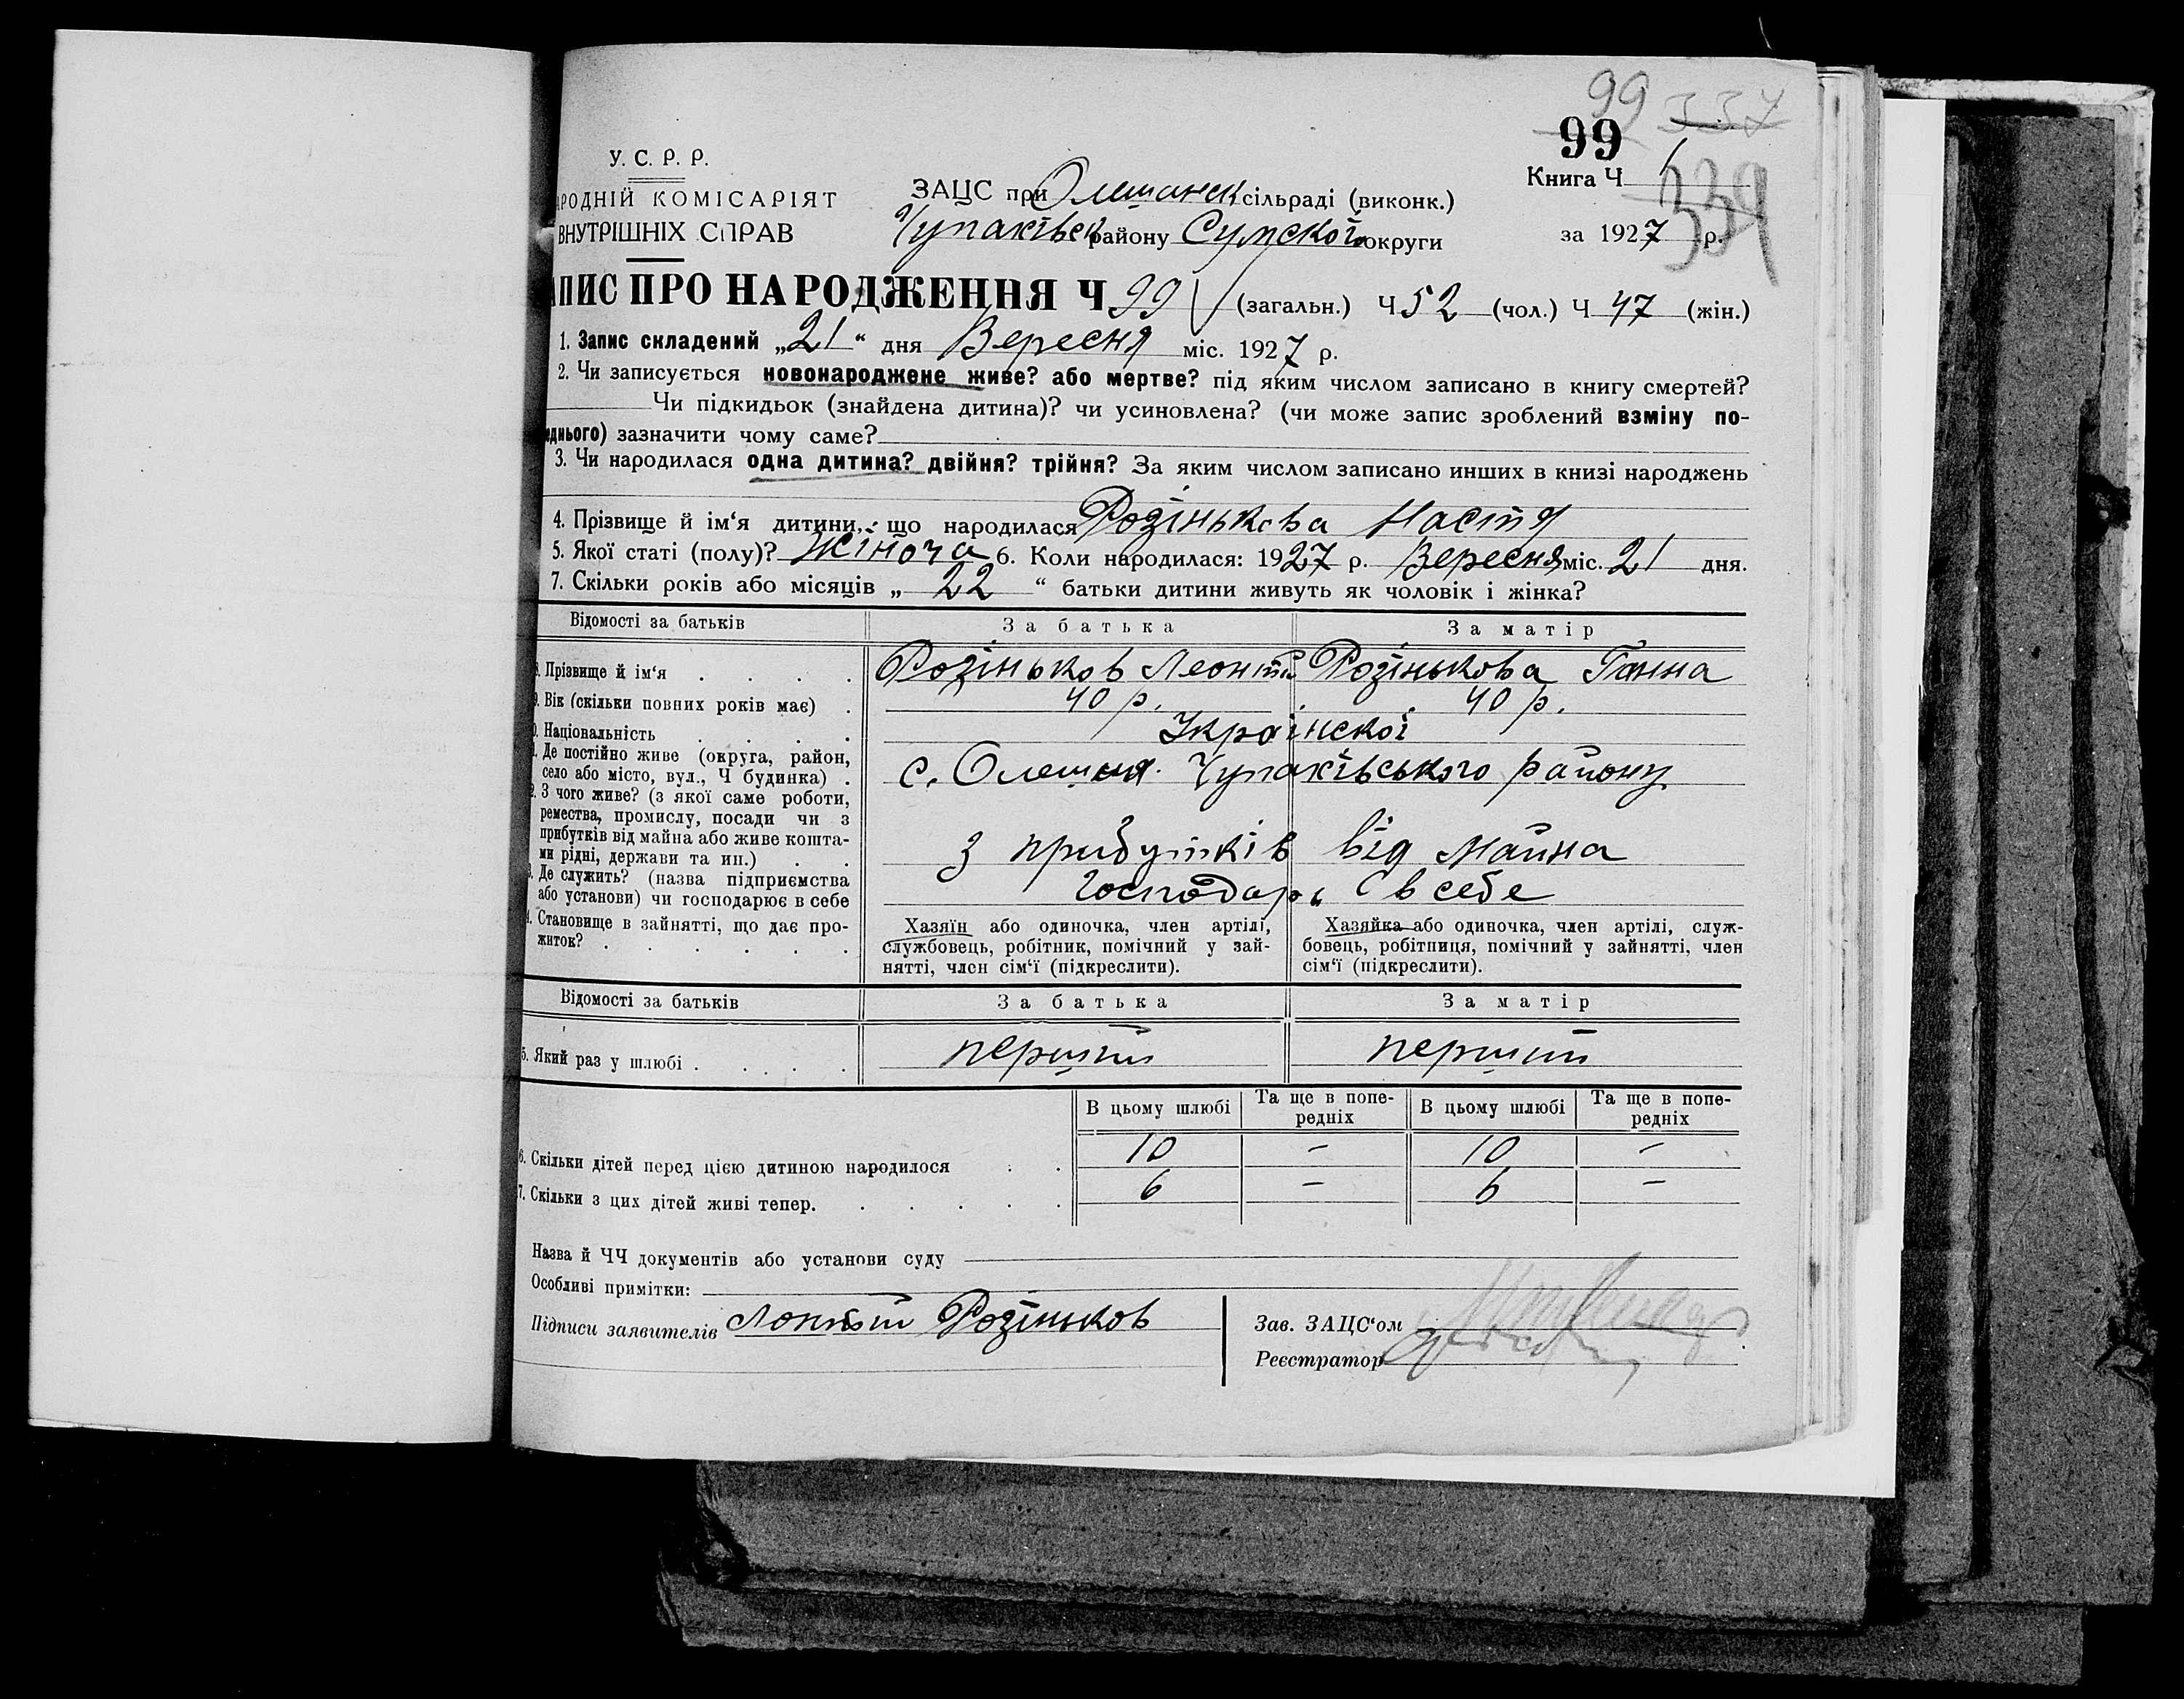 99 337
99
339
У. С. Р. Р.
АРОДНІЙ КОМІСАРІЯТ
ВНУТРІШНІХ СПРАВ
ЗАЦС при Олешанск сільраді (виконк.)
Чупаківськ району Сумскої округи
Книга Ч 1
за 1927 р.
АПИС ПРО НАРОДЖЕННЯ Ч 99 (загальн.) Ч 52 (чол.) Ч 47 (жін.)
1. Запис складений „21“ дня Вересня міс. 1927 р.
2. Чи записується новонароджене живе? або мертве? під яким числом записано в книгу смертей?
Чи підкидьок (знайдена дитина)? чи усиновлена? (чи може запис зроблений взміну по-
еднього) зазначити чому саме?
3. Чи народилася одна дитина? двійня? трійня? За яким числом записано инших в книзі народжень
4. Прізвище й ім‘я дитини, що народилася Розінькова Настя
5. Якої статі (полу)? Жіноча 6. Коли народилася: 1927 р. Вересня міс. 21 дня.
7. Скільки років або місяців „ 22 “ батьки дитини живуть як чоловік і жінка?
Відомості за батьків За батька За матір
8. Прізвище й ім‘я . . . . Розіньков Леонтій Розінькова Ганна
9. Вік (скільки повних років має) . 40 р. 40 р.
0. Національність . . . . Украінскоі
1. Де постійно живе (округа, район,
село або місто, вул., Ч будинка) . с. Олешня Чупаківського району
2. З чого живе? (з якої саме роботи,
ремества, промислу, посади чи з
прибутків від майна або живе кошта-
ми рідні, держави та ин.) . . з прибутків від майна
3. Де служить? (назва підприємства
або установи) чи господарює в себе Господарь в себе
4. Становище в зайнятті, що дає про-
житок? . . . . .
Хазяїн або одиночка, член артілі,
службовець, робітник, помічний у зай-
нятті, член сім‘ї (підкреслити).
Хазяйка або одиночка, член артілі, служ-
бовець, робітниця, помічний у зайнятті, член
сім‘ї (підкреслити).
Відомості за батьків За батька За матір
5. Який раз у шлюбі . . . . . перший перший
В цьому шлюбі Та ще в попе-
редніх В цьому шлюбі Та ще в попе-
редніх
6. Скільки дітей перед цією дитиною народилося . . 10 – 10 –
7. Скільки з цих дітей живі тепер. . . . . . 6 – 6 –
Назва й ЧЧ документів або установи суду
Особливі примітки:
Підписи заявителів Розіньков
Зав. ЗАЦС‘ом
Реєстратор